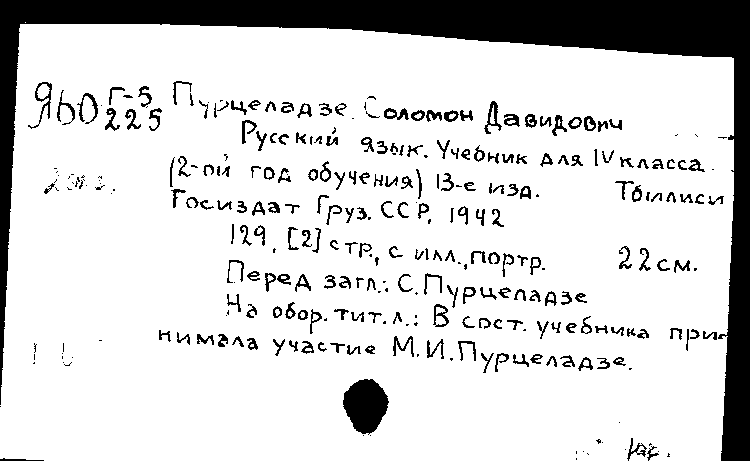 ЯЬО Г-5 225 Пурцеладзе Соломон Давидович
Русский язык. Учебник для IV класса
(2-ой год обучения) 13-е изд. Тбилиси
Госиздат Груз. ССР, 1942
129, [2] стр., с илл., портр. 22 см.
Перед загл.: С. Пурцеладзе
На обор. тит. л.: В сост. учебника при-
нимала участие М. И. Пурцеладзе.